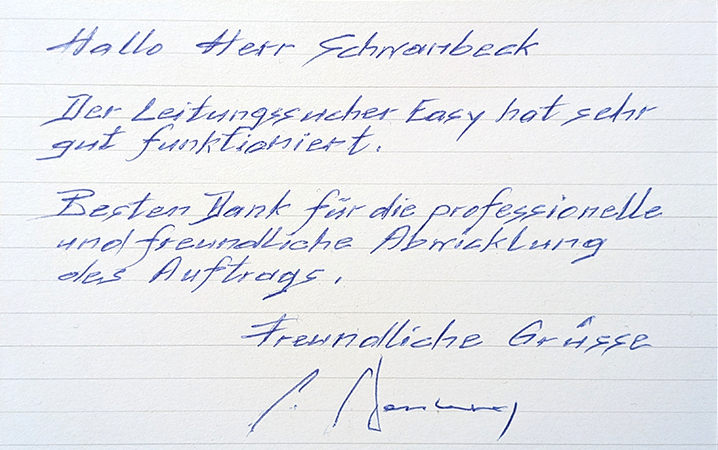 Hallo Herr Schwarnbeck
Der Leitungssucher Easy hat sehr
gut funktioniert.
Besten Dank für die professionelle
und freundliche Abwicklung
des Auftrags.
Freundliche Grüsse